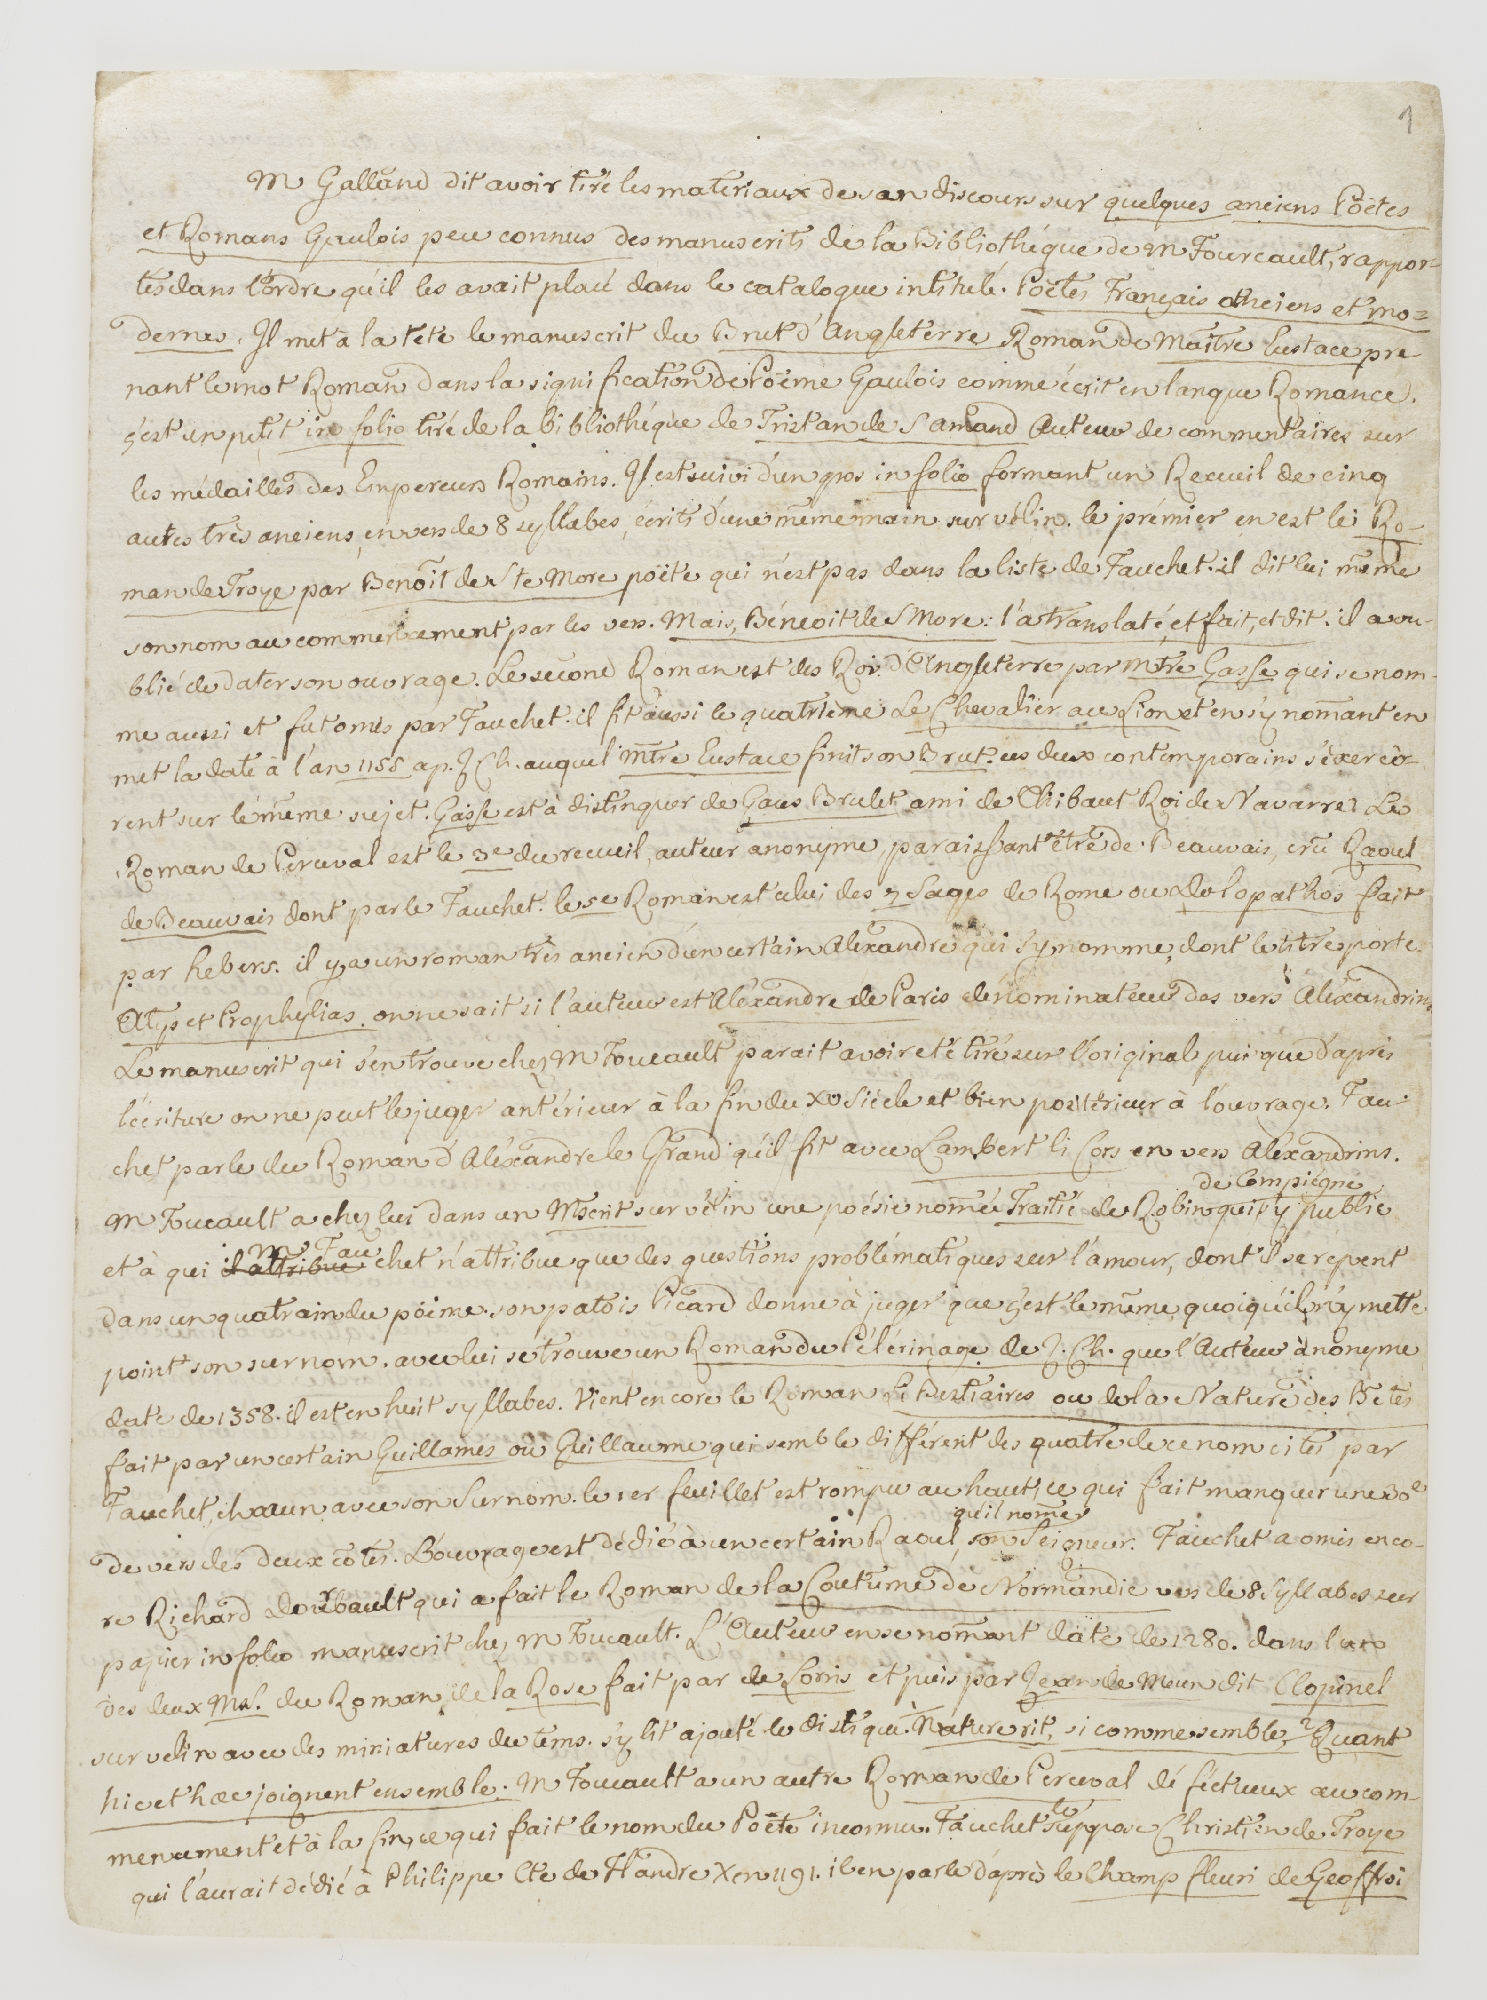 1
M Galland dit avoir tiré les matériaux de son discours sur quelques anciens Poëtes
et Romans Gaulois peu connus des manuscrits de la Bibliothéque de M Fourcault, rappor-
tés dans l'ordre qu'il les avait placé dans le catalogue intitulé. Poëtes Français anciens et mo=
dernes. Il met à la tête le manuscrit du Brut d'Angleterre Roman de Maître Eustace pre
nant le mot Roman dans la signification de Poëme Gaulois comme écrit en langue Romance.
c'est un petit in folio tiré de la bibliothéque de Tristan de S Amand Auteur de commentaires sur
les médailles des Empereurs Romains. Il est suivi d'un gros in folio formant un Recueil de cinq
autres très anciens, en vers de 8 syllabes, écrits d'une même main sur vélin. le prémier en est le Ro-
man de Troye par Benoît de Ste More poëte qui n'est pas dans la liste de Fauchet. il dit lui même
son nom au commencement par les vers. Mais, Béneoit de S More : l'a translaté, et fait, et dit. il a ou-
blié de dater son ouvrage. Le second Roman est des Rois d'Angleterre par Mtre Gasse qui se nom-
me aussi et fut omis par Fauchet. il fit aussi le quatrième Le Chevalier au Lion et en s'y nomant en
met la date à l'an 1155 ap. J Ch. auquel Mtre Eustace finit son Brut. ces deux contemporains s'éxercè-
rent sur le même sujet. Gasse est à distinguer de Gaces Brulet ami de Thibaut Roi de Navarre. Le
Roman de Perceval est le 3e du recueil, auteur anonyme, paraissant être de Beauvais, cru Raoul
de Beauvais dont parle Fauchet. le 5e Roman est celui des 7 Sages de Rome ou Dolopathos fait
par hebers. il y a un roman très ancien d'un certain Aléxandre qui s'y nomme, dont le titre porte
Atys et Prophylias. on ne sait si l'auteur est Aléxandre de Paris dénominateur des vers Aléxandrins
Le manuscrit qui s'en trouve chez M Foucault parait avoir eté tiré sur l'original puis que d'après
l'écriture on ne peut le juger antérieur à la fin du XVe Siécle et bien postérieur à l'ouvrage. Fau-
chet parle du Roman d'Aléxandre le Grand qu'il fit avec Lambert li Cors en vers Aléxandrins.
de Compiégne
M Foucault a chez lui dans un Mscrit sur vélin une poésie nomée Traitié de Robin qui s'y publie
M Fau
et à qui il attribue chet n'attribue que des questions problématiques sur l'amour, dont il se répent
dans un quatrain du poëme. son patois Picard donne à juger que c'est le même, quoiqu'il n'y mette
point son surnom. avec lui se trouve un Roman du Pélérinage de J. Ch. que l'Auteur anonyme
date de 1358. il est en huit syllabes. Vient encore le Roman Li Bestiaires ou de la Nature des Bêtes
fait par un certain Guillames ou Guillaume qui semble différent des quatre de ce nom cités par
Fauchet, chacun avec son Surnom. le 1er feuillet est rompu au haut, ce qui fait manquer une 30e
qu'il nomme
de vers des deux côtés. L'ouvrage est dédié à un certain Raoul, son Seigneur. Fauchet a omis enco-
re Richard Dourbault qui a fait le Roman de la Coutume de Normandie vers de 8 Syllabes sur
papier in folio manuscrit chez M Foucault. L'Auteur en se nomant date de 1280. dans l'un
des deux Mss. du Roman de la Rose fait par de Lorris et puis par Jean de Meun dit Clopinel
sur velin avec des miniatures du tems. s'y lit ajouté le distique. Nature rit, si comme semble, Quant
hic et hæc joignent ensemble. M Foucault a un autre Roman de Perceval déféctueux au com-
le
mencement et à la fin, ce qui fait le nom du Poëte inconnu. Fauchet suppose Christien de Troye
qui l'aurait dédié à Philippe Cte de Flandre X en 1191. il en parle d'après le Champ fleuri de Geoffroi